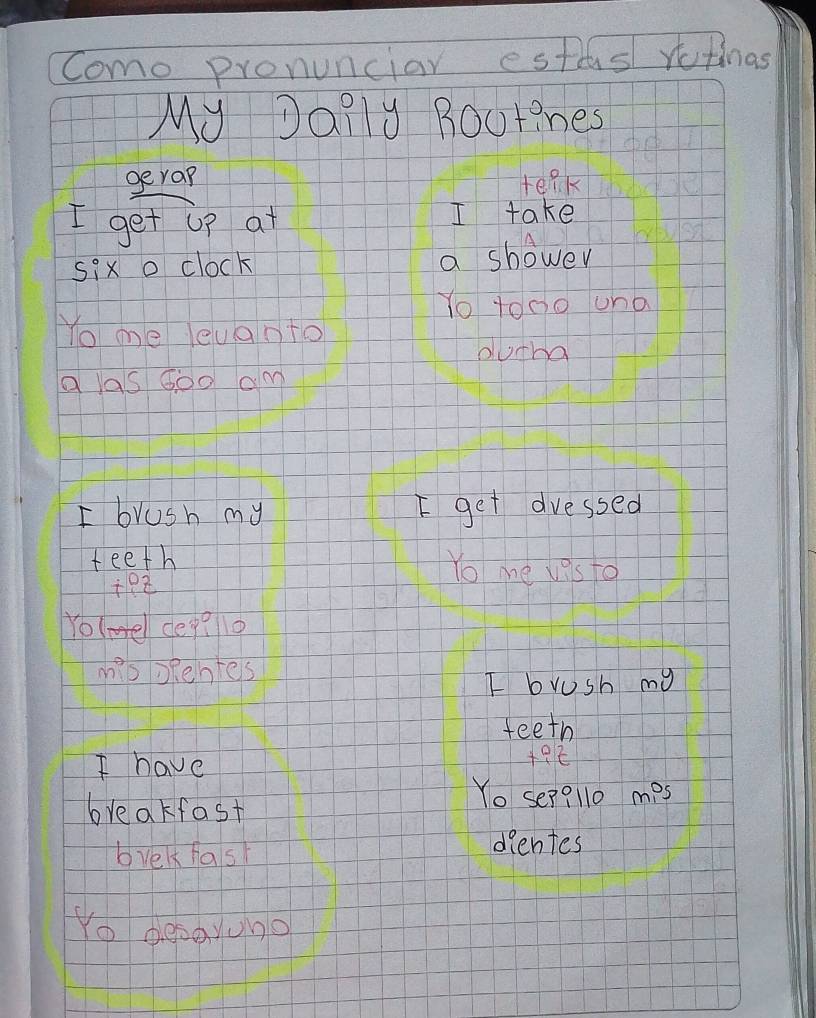 Como pronunciar estas rutinas
My Daily Routines
gerap
I get up at
six o clock
Yo me levanto
a las 6:00 am
teik
I take
a
a shower
Yo tomo una
ducha
I brush my
teeth
tiz
Yo me cepillo
mis Dientes
I get dressed
Yo me visto
I have
breakfast
brekfast
Yo desayuno
I brush my
teeth
tiz
Yo sepillo mis
dientes